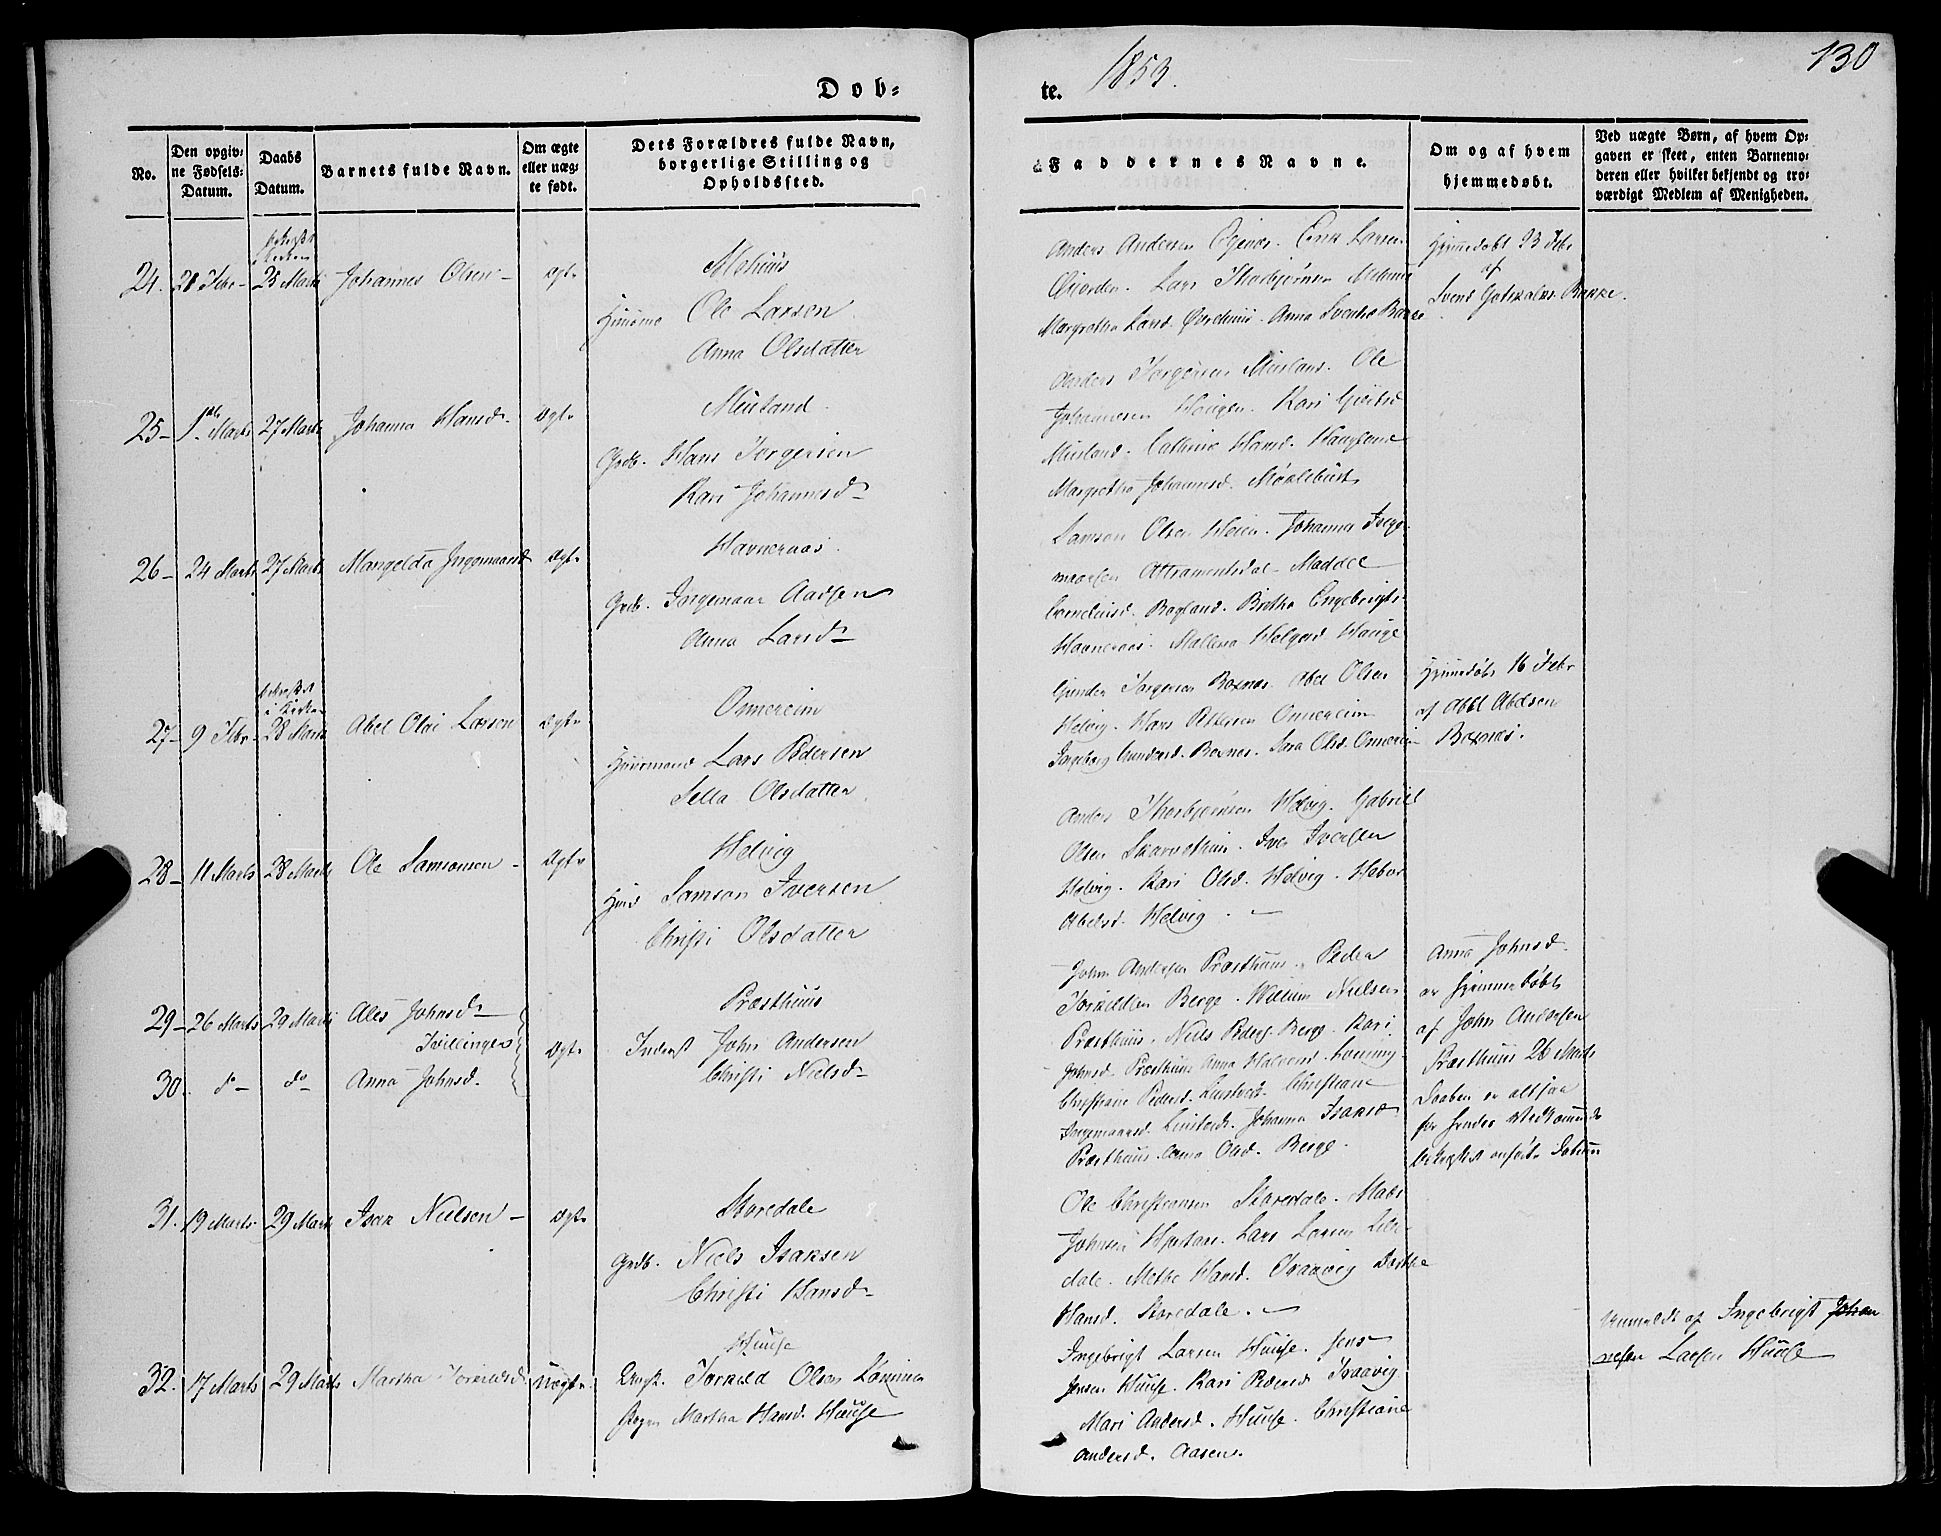 Døb-
te. 1853.
130
No.
Den opgiv-
ne Fødsels-
Datum.
Daabs
Datum.
Barnets fulde Navn.
Om ægte
eller uæg-
te født.
Dets Forældres fulde Navn,
borgerlige Stilling og
Opholdssted.
Faddernes Navne.
Om og af hvem
hjemmedøbt.
Ved uægte Børn, af hvem Op-
gaven er skeet, enten Barnemo-
deren eller hvilket bekjendt og tro-
værdigt Medlem af Menigheden.
24. 21 Febr 25 Marts Johannes Olsen Ægte
Ole Larsen
Anna Olsdatter
Anders Andersen Erik Larsen
Lars Thorbjørnsen
Margretha Larsd. Anna Svendsd Bakke
Hjemmedøbt 23 Febr
af
Svend Gotskalks. Bakke.
25 1ste Marts 27 Marts Johanna Hansd. Ægte
Midland
Grdb. Hans Torgersen
Kari Johannesd
Anders Torgersen Midland. Ole
Johannesen Haugen. Kari
Midland. Cathrine Hansd. Haugland
Margretha Johannesd.
26 24 Marts 27 Marts Mangelda Ingemaarsd Ægte
Havneraas
Grdb. Ingemaar Aadsen
Anna Larsd
Samson Olsen Heien. Johannes Inge-
maarsen Attramentsdal
Corneliusd. Bagland. Birtha Engebrigts-
Havneraas. Mallena Helgesd Hauge
27 9 Febr bekræftet
i Kirken
28 Marts Abel Olai Larsen Ægte
Onnereim
Huusmand Lars Pedersen
Sella Olsdatter
Gunder Torgersen Boxnæs. Abel Olsen
Helvig. Hans Pettersen Onnereim
Ingeborg Gundersd. Boxnæs. Sara Olsd. Onnereim
Hjemmedøbt 16 Febr
af Abel Abelsen
Boxnæs.
28 11 Marts 28 Marts Ole Samsonsen Ægte
Helvig
Samson Iversen
Christi Olsdatter
Anders Thorbjørnsen Helvig. Gabriel
Olsen Iver Iversen
Helvig. Kari Olsd. Helvig.
Abelsd. Helvig.
29 26 Marts 29 Marts Ales Johnsd
Tvillinger Ægte
30. do do Anna Johnsd.
Præsthuus
Inderst John Andersen
Christi Nielsd
John Andersen Præsthuus. Peder
Torkildsen Berge. Willum Nielsen
Præsthuus. Niels Peders. Berge. Kari
Johnsd. Præsthuus Anna Halvorsd.
Christiane Pedersd. Christiane
Ingemaarsd. Johanna Isaksd
Præsthuus. Anna Olsd. Berge.
Anna Johnsd.
er hjemmedøbt
af John Andersen
Præsthuus 26 Marts
Daaben er altsaa
for hendes Vedkommende
bekræftet anførte Datum
31. 19 Marts 29 Marts Isak Nielsen Ægte
Storedale
Grdb. Niels Isaksen
Christi Hansd
Ole Christiansen Storedale. Mads
Johnsen Lars Larsen Lille-
dale. Mette Hansd. Dorthe
Hansd. Storedale.
32. 17 Marts 29 Marts Martha Torkildsd. Uægte
Huuse
Torkild Olsen
Pigen Martha Hansd. Huuse
Ingebrigt Larsen Huuse. Jens
Jensen Huuse. Kari Pedersd
Mari Andersd. Huuse. Christiane
Andersd. Aasen.
Anmeldt af Ingebrigt Johan
nesen Larsen Huuse